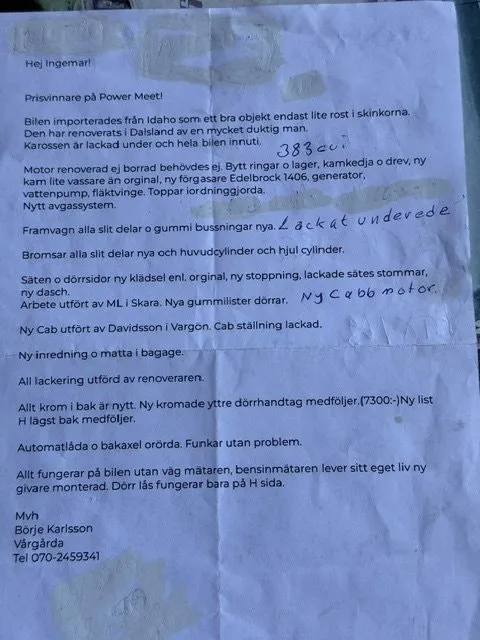 Hej Ingemar!
Prisvinnare på Power Meet!
Bilen importerades från Idaho som ett bra objekt endast lite rost i skinkorna.
Den har renoverats i Dalsland av en mycket duktig man.
Karossen är lackad under och hela bilen innuti.
383 cui
Motor renoverad ej borrad behövdes ej. Bytt ringar o lager, kamkedja o drev, ny
kam lite vassare än orginal, ny förgasare Edelbrock 1406, generator,
vattenpump, fläktvinge. Toppar iordninggjorda.
Nytt avgassystem.
Framvagn alla slit delar o gummi bussningar nya. Lackat underede
Bromsar alla slit delar nya och huvudcylinder och hjul cylinder.
Säten o dörrsidor ny klädsel enl. orginal, ny stoppning, lackade sätes stommar,
ny dasch.
Arbete utfört av ML i Skara. Nya gummilister dörrar. Ny Cabb motor.
Ny Cab utfört av Davidsson i Vargön. Cab ställning lackad.
Ny inredning o matta i bagage.
All lackering utförd av renoveraren.
Allt krom i bak är nytt. Ny kromade yttre dörrhandtag medföljer.(7300:-)Ny list
H lägst bak medföljer.
Automatlåda o bakaxel orörda. Funkar utan problem.
Allt fungerar på bilen utan väg mätaren, bensinmätaren lever sitt eget liv ny
givare monterad. Dörr lås fungerar bara på H sida.
Mvh
Börje Karlsson
Vårgårda
Tel 070-2459341